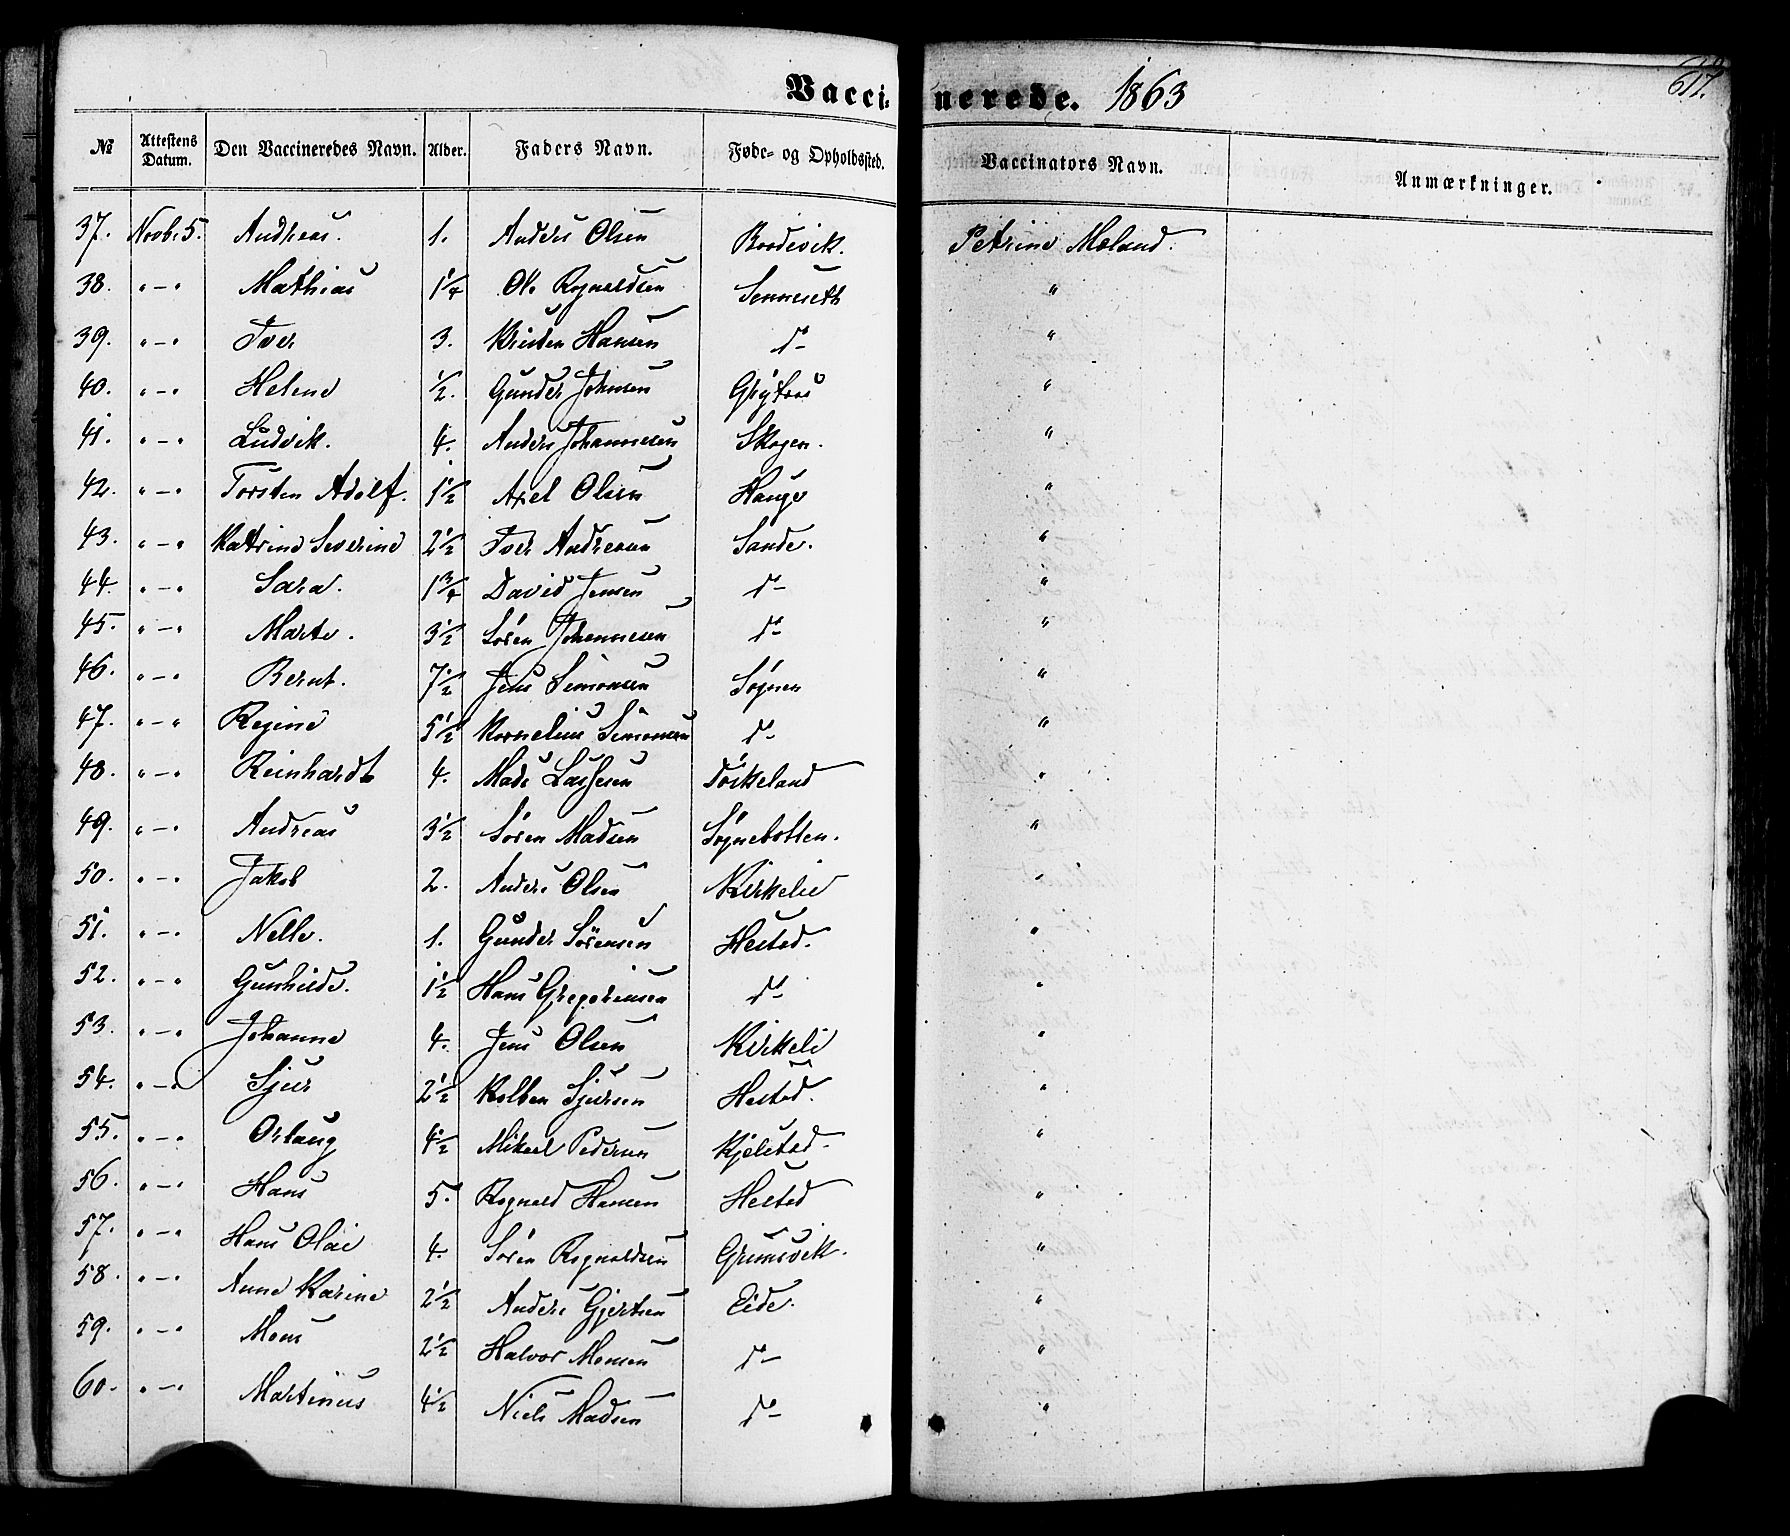 Vaccinerede. 1863
617.
№ Attestens Datum. Den Vaccineredes Navn. Alder. Faders Navn. Føde- og Opholdssted. Vaccinators Navn. Anmærkninger.
37. Novb. 5. Andreas. 1. Anders Olsen Petrine Mæland.
38. " - " Mathias 1 1/4 Ole Rognaldsen Senneseth "
39. " - " Iver 3. Kristen Hansen do "
40. " - " Helene 1/2. Gunder Johnsen Grytaas "
41. " - " Ludvik. 4. Anders Johannesen Skogen. "
42. " - " Torsten Adolf. 1 1/2 Axel Olsen Hauge "
43. " - " Katrine Severine 2 1/2 Iver Andreasen Sande. "
44. " - " Sara. 1 3/4 David Jensen do "
45. " - " Marte. 3 1/2 Sören Johannesen do "
46. " - " Bernt. 7 1/2 Jens Simonsen Sögnen "
47. " - " Regine 5 1/2 Kornelius Simonsen do "
48. " - " Reinhardt 4. Mads Lassesen Töskeland "
49. " - " Andreas 3 1/2 Sören Madsen Sögnebotten. "
50. " - " Jakob 2. Anders Olsen Kirkelie "
51. " - " Nelle. 1. Gunder Sörensen Hestad. "
52. " - " Gunhilde. 1 1/2 Hans Gregoriusen do "
53. " - " Johanne 4. Jens Olsen Kirkeli "
54. " - " Sjur 2 1/2 Kolben Sjursen Hestad. "
55. " - " Orlaug 4 1/2 Mikael Pedersen Kjelstad. "
56. " - " Hans 5. Rognald Hansen Hestad "
57. " - " Hans Olai 4. Sören Rognaldsen Grimsvik. "
58. " - " Anne Karine 2 1/2 Anders Gjertsen Eide. "
59. " - " Mons 2 1/2 Halvor Monsen do "
60. " - " Martinus 4 1/2 Niels Madsen do "